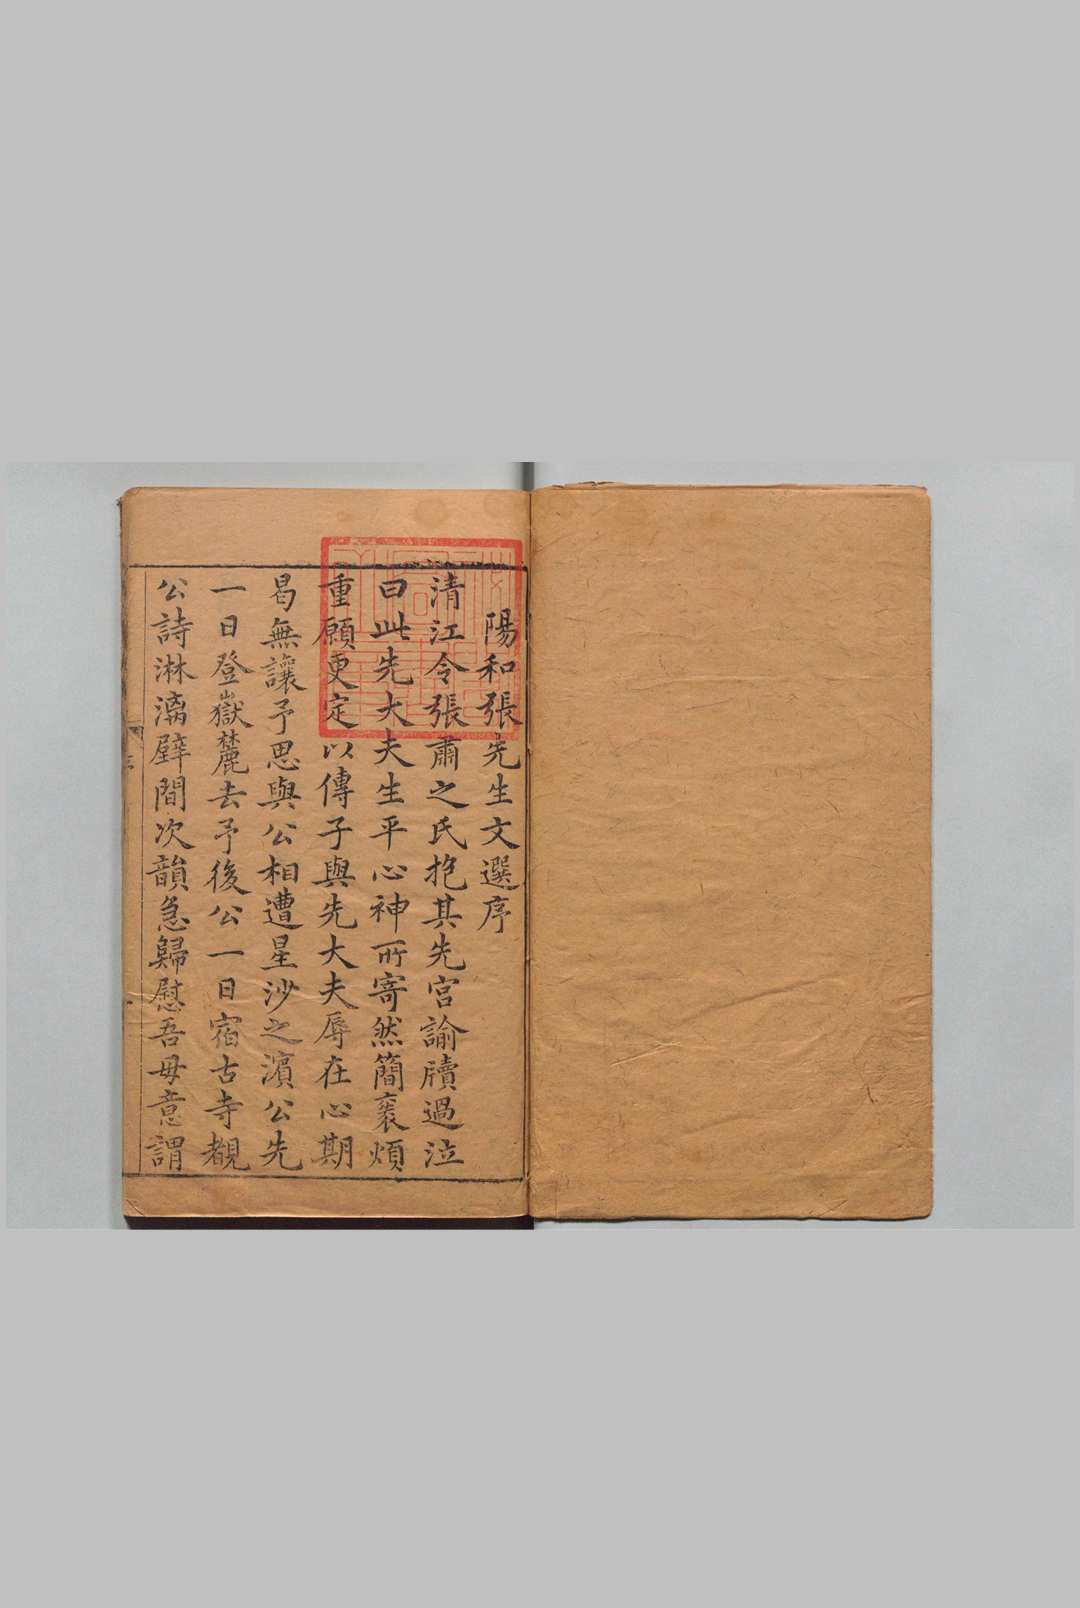 陽和張先生文選序
清江令張肅之氏抱其先宮諭牘過泣
曰此先大夫生平心神所寄然簡袠煩
重願更定以傳子與先大夫辱在心期
曷無讓予思與公相遭星沙之濱公先
一日登嶽麓去予後公一日宿古寺覩
公詩淋漓壁間次韻急歸慰吾母意謂